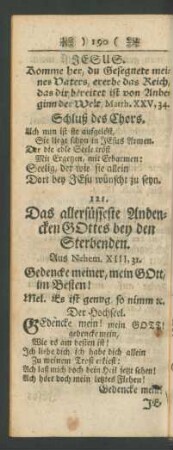 ) 190 (
JESUS.
Komme her, du Gesegnete mei-
nes Vaters, ererbe das Reich,
das dir bereitet ist von Anbe-
ginn der Welt, Matth. XXV, 34.
Schluß des Chors.
Ach nun ist sie aufgelöst,
Sie liegt schon in JEsus Armen.
Der die edle Seele tröst
Mit Ergetzen, mit Erbarmen:
Seelig, der wie sie allein
Dort bey JEsu wünscht zu seyn.
121.
Das allersüsseste Anden-
cken GOttes bey den
Sterbenden.
Aus Nehem. XIII. 31.
Gedencke meiner, mein GOtt,
im Besten!
Mel. Es ist genug, so nimm ꝛc.
Der Hochseel.
Gedencke mein! mein GOTT!
gedencke mein,
Wie es am besten ist!
Ich liebe dich, ich habe dich allein
Zu meinem Trost erkießt:
Ach laß mich doch dein Heil jetzt sehen!
Ach hör doch mein letztes Flehen!
Gedencke mein!
JE